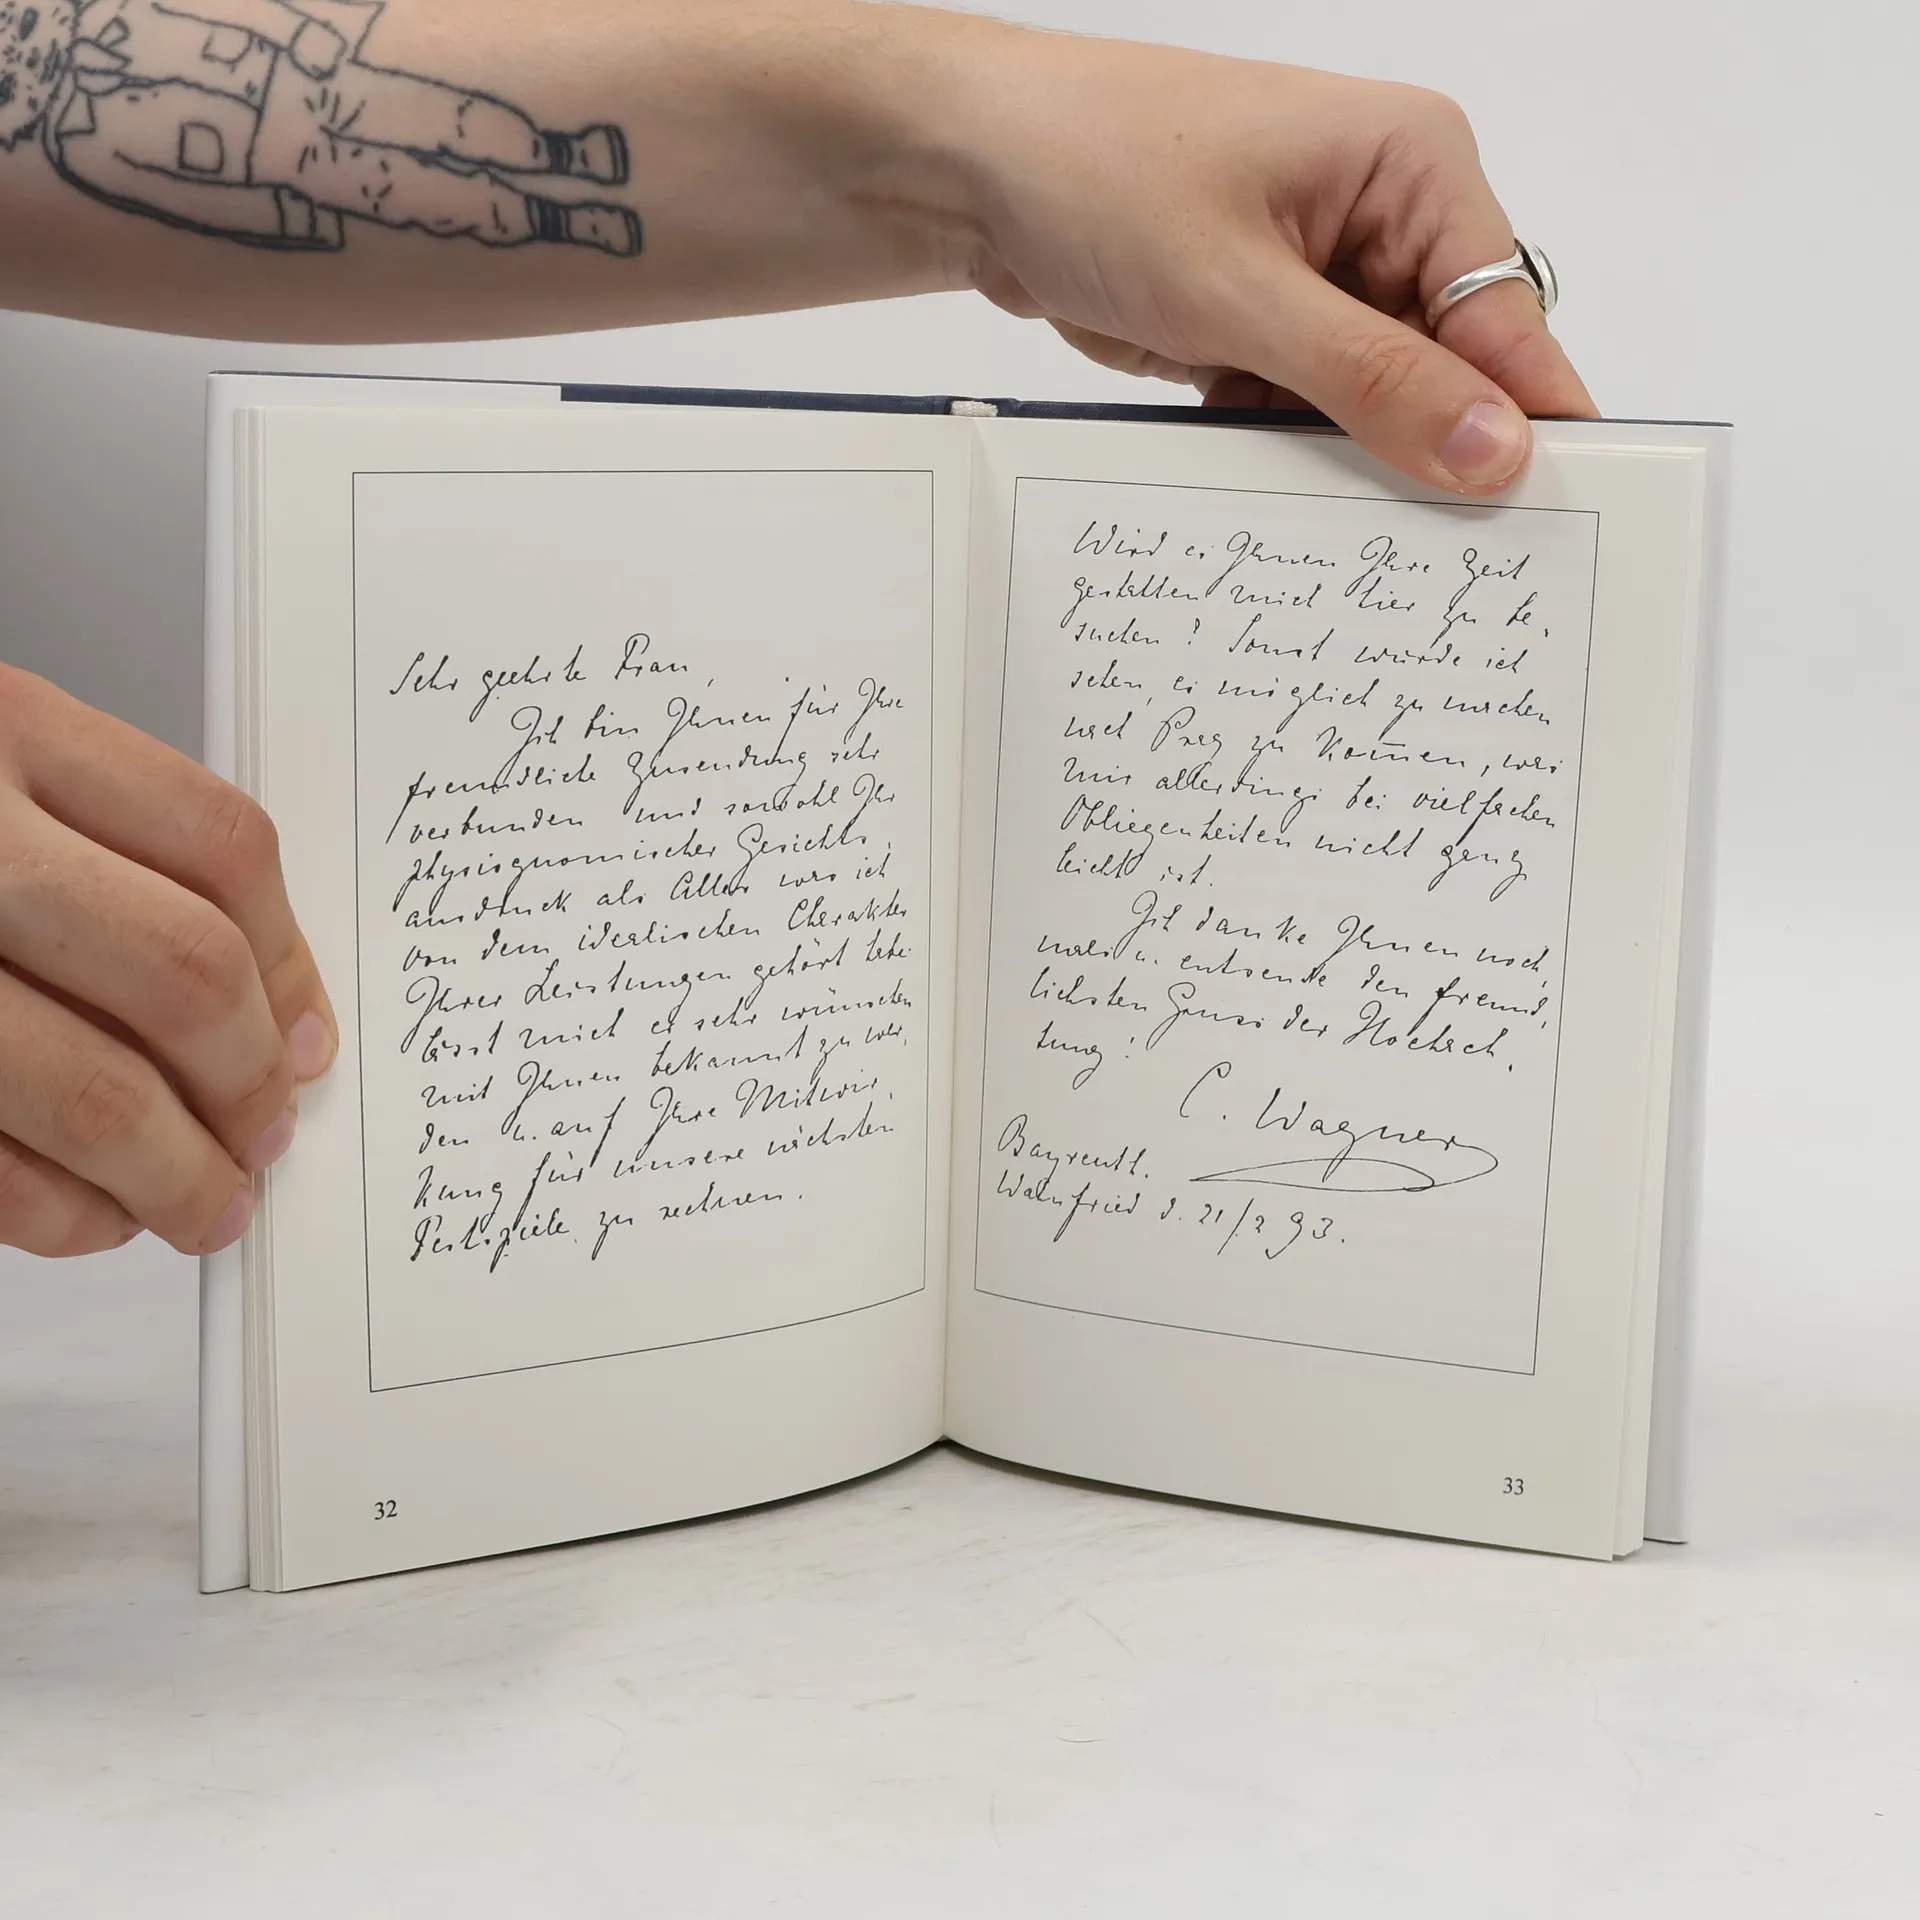 Sehr geehrte Frau,
Ich bin Ihnen für Ihre
freundliche Zusendung sehr
verbunden und sowohl Ihr
physiognomischer Gesichts,
ausdruck als Alles was ich
von dem idealischen Charakter
Ihrer Leistungen gehört habe
lässt mich es sehr wünschen
mit Ihnen bekannt zu wer,
den u. auf Ihre Mitwir,
kung für unsere nächsten
Festspiele zu rechnen.
32
Wird es Ihnen Ihre Zeit
gestatten mich hier zu be,
suchen? Sonst würde ich
sehen, es möglich zu machen
nach Prag zu kom̅en, was
mir allerdings bei vielfachen
Obliegenheiten nicht ganz
leicht ist.
Ich danke Ihnen noch,
mals u. entsende den freund,
lichsten Gruss der Hochach,
tung!
C. Wagner
Bayreuth.
Wahnfried d. 21/2 93.
33